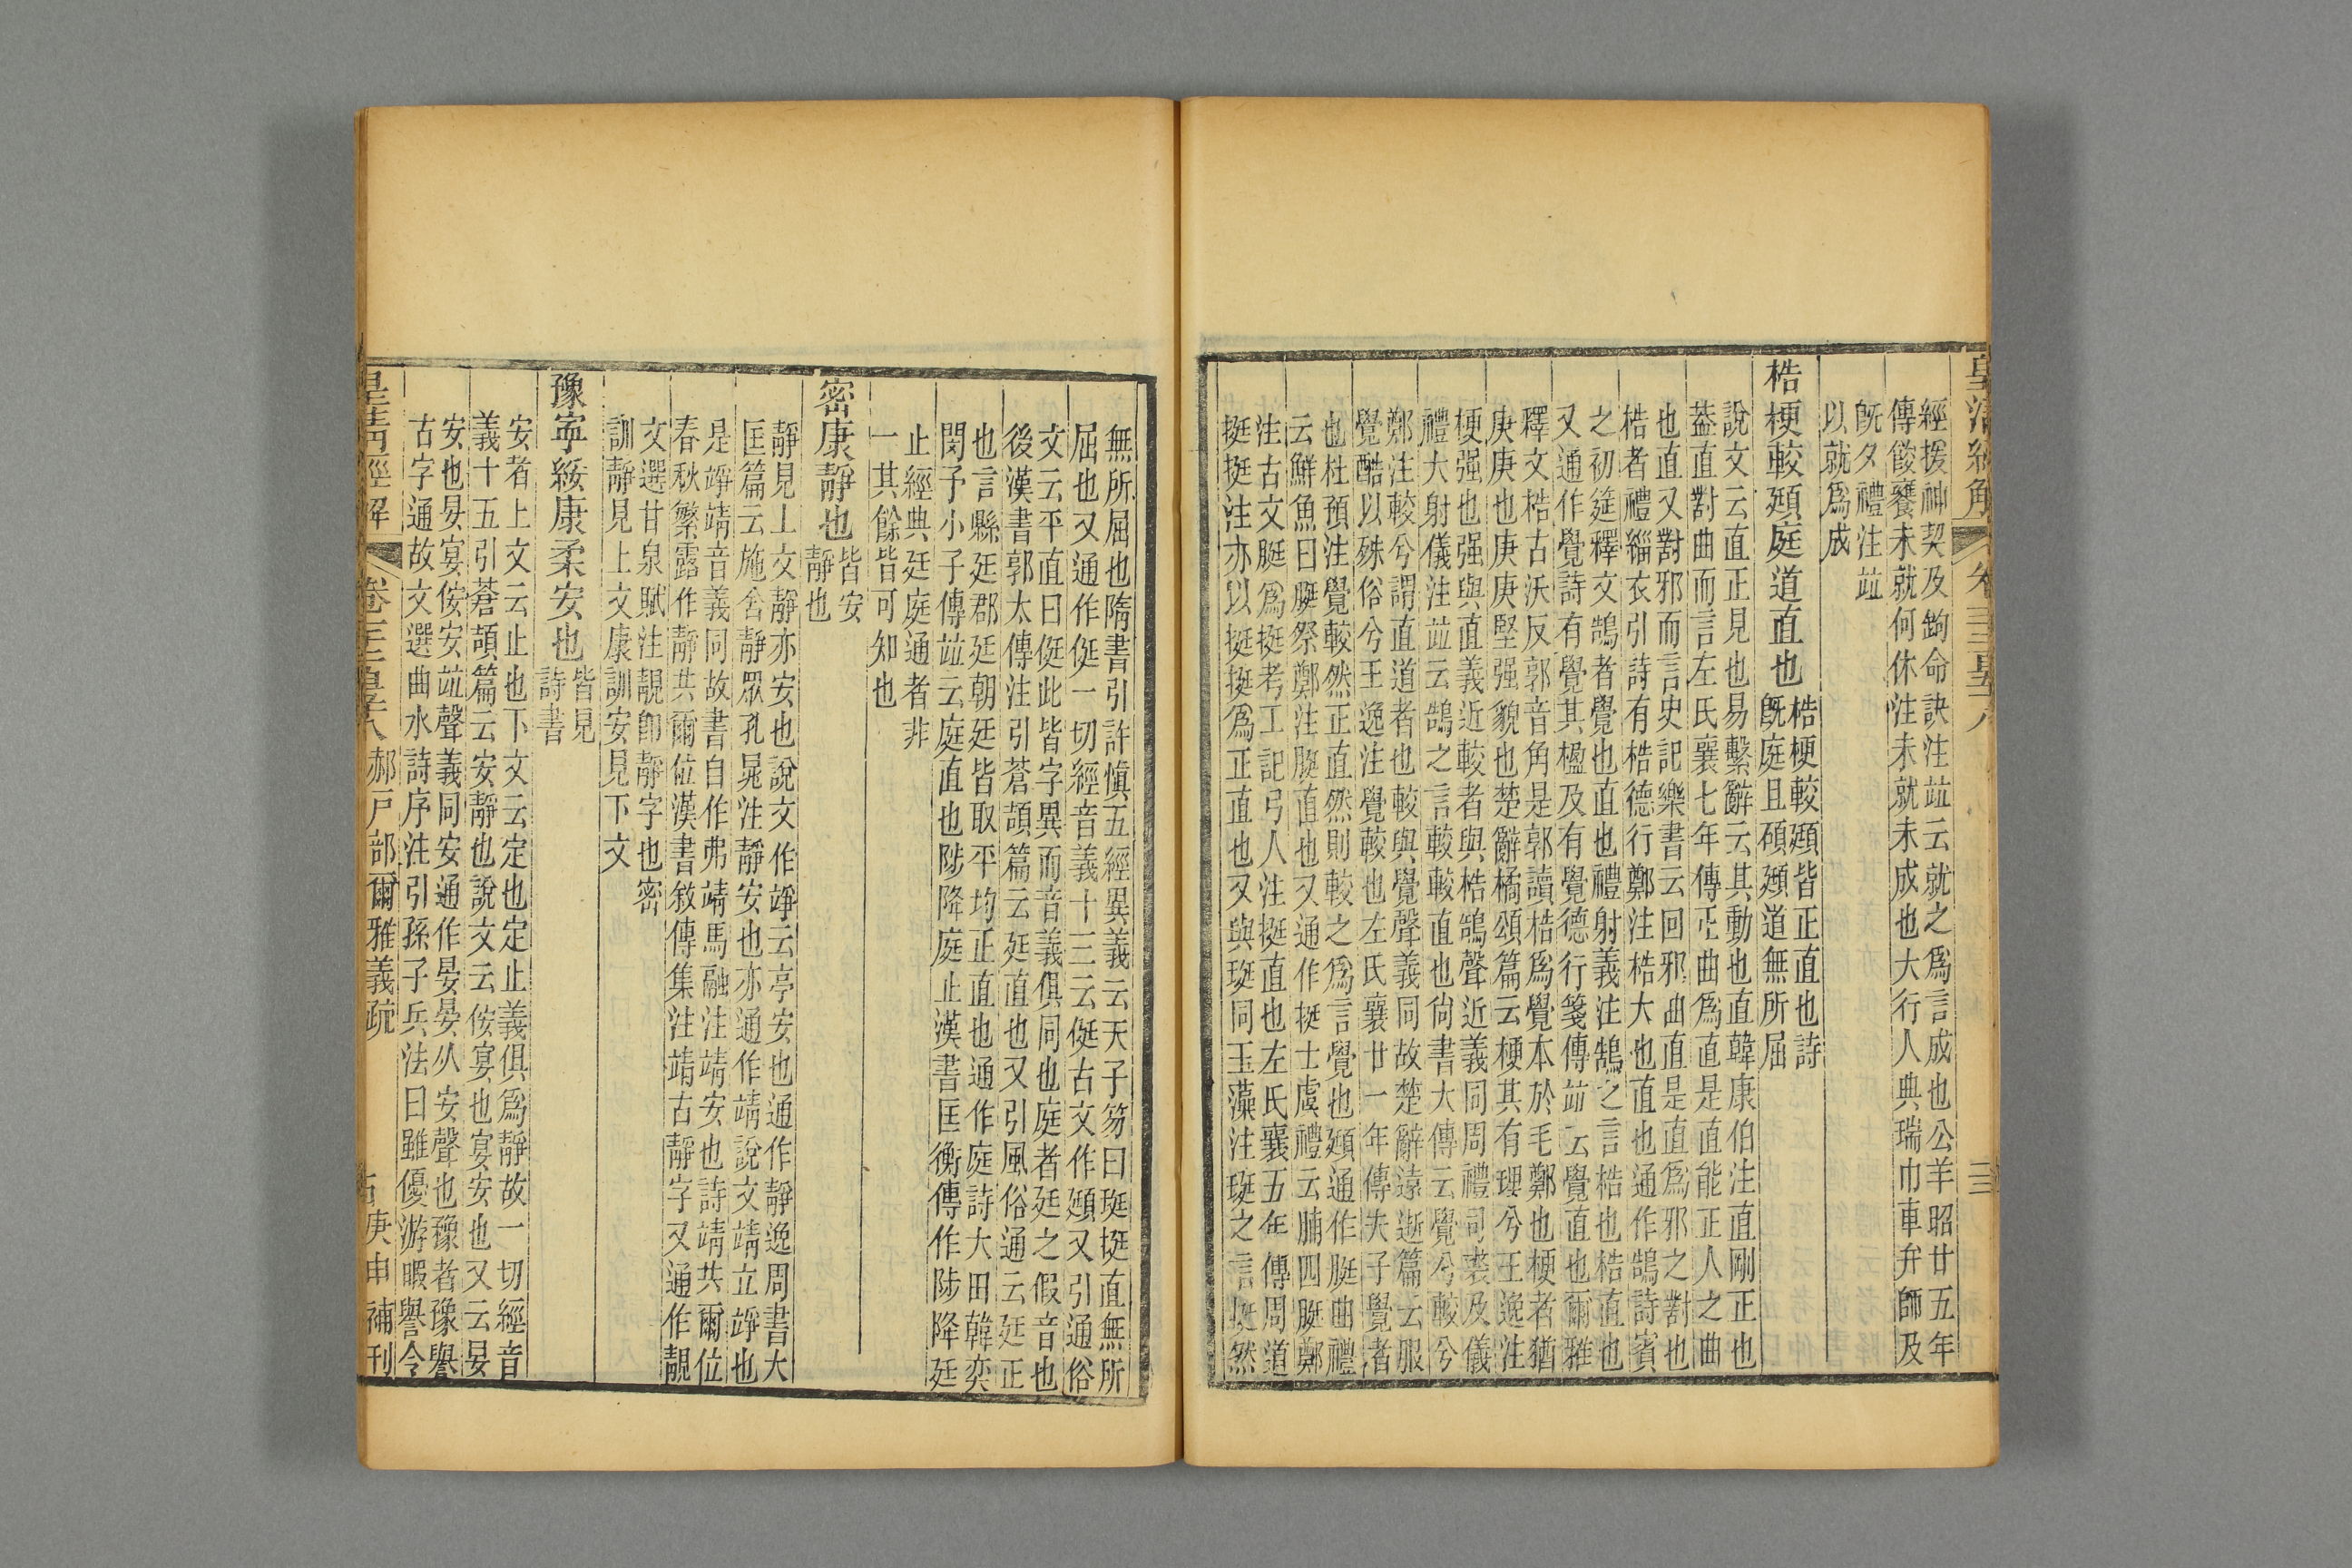 皇清經解
卷千二百五十八
三
經援神契及鉤命訣注竝云就之爲言成也公羊昭廿五年
傳餕饔未就何休注未就未成也大行人典瑞巾車弁師及
旣夕禮注竝
以就爲成
梏梗較頲庭道直也
梏梗較頲皆正直也詩
旣庭且碩頲道無所屈
說文云直正見也易繫辭云其動也直韓康伯注直剛正也
葢直對曲而言左氏襄七年傳正曲爲直是直能正人之曲
也直又對邪而言史記樂書云回邪曲直是直爲邪之對也
梏者禮緇衣引詩有梏德行鄭注梏大也直也通作鵠詩賓
之初筵釋文鵠者覺也直也禮射義注鵠之言梏也梏直也
又通作覺詩有覺其楹及有覺德行箋傳竝云覺直也爾雅
釋文梏古沃反郭音角是郭讀梏爲覺本於毛鄭也梗者猶
庚庚也庚庚堅强貌也楚辭橘頌篇云梗其有理兮王逸注
梗强也强與直義近較者與梏鵠聲近義同周禮司裘及儀
禮大射儀注竝云鵠之言較較直也尙書大傳云覺兮較兮
鄭注較兮謂直道者也較與覺聲義同故楚辭遠逝篇云服
覺酷以殊俗兮王逸注覺較也左氏襄廿一年傳夫子覺者
也杜預注覺較然正直然則較之爲言覺也頲通作脡曲禮
云鮮魚曰脡祭鄭注脡直也又通作挺士虞禮云脯四脡鄭
注古文脡爲挺考工記弓人注挺直也左氏襄五年傳周道
挺挺注亦以挺挺爲正直也又與珽同玉藻注珽之言挺然
無所屈也隋書引許愼五經異義云天子笏曰珽挺直無所
屈也又通作侹一切經音義十三云侹古文作頲又引通俗
文云平直曰侹此皆字異而音義俱同也庭者廷之假音也
後漢書郭太傳注引蒼頡篇云廷直也又引風俗通云廷正
也言縣廷郡廷朝廷皆取平均正直也通作庭詩大田韓奕
閔予小子傳竝云庭直也陟降庭止漢書匡衡傳作陟降廷
止經典廷庭通者非
一其餘皆可知也
密康靜也
皆安
靜也
靜見上文靜亦安也說文作竫云亭安也通作靜逸周書大
匡篇云施舍靜眾孔晁注靜安也亦通作靖說文靖立竫也
是竫靖音義同故書自作弗靖馬融注靖安也詩靖共爾位
春秋繁露作靜共爾位漢書敘傳集注靖古靜字又通作靚
文選甘泉賦注靚卽靜字也密
訓靜見上文康訓安見下文
豫寧綏康柔安也
皆見
詩書
安者上文云止也下文云定也定止義俱爲靜故一切經音
義十五引蒼頡篇云安靜也說文云侒宴也宴安也又云妟
安也妟宴侒安竝聲義同安通作晏晏从安聲也豫者豫譽
古字通故文選曲水詩序注引孫子兵法曰雖優游暇譽令
皇清經解
卷千二百五十八
郝戸部爾雅義疏
庚申補刊